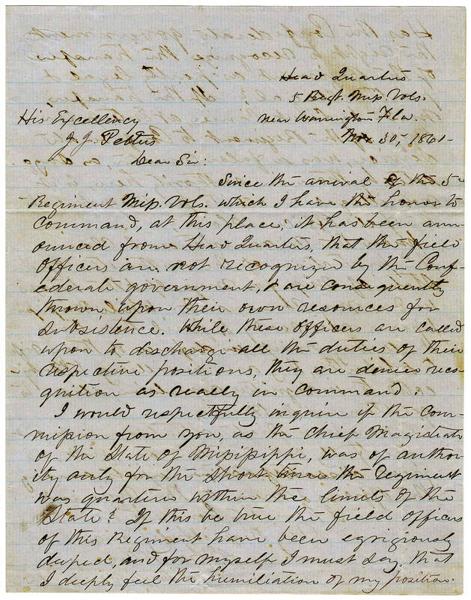 Head Quarters
5 Regt. Miss. Vols.
near Warrington Fla.
Nov 30, 1861-
His Excellency
J. J. Pettus
Dear Sir:
Since the arrival of the 5
Regiment Miss. Vols. which I have the honor to
command, at this place, it has been ann-
ounced from Head Quarters, that the field
Officers are not recognized by the Conf-
ederate government, & are consequently
thrown upon their own resources for
subsistence. While these officers are called
upon to discharge all the duties of their
respective positions, they are denied reco-
gnition as really in command.
I would respectfully inquire if the com-
mission from you, as the Chief Magistrate
of the State of Mississippi, was of author-
ity only for the short time the Regiment
was quartered within the limits of the
State? If this be true the field officers
of this Regiment have been egregiously
duped, and for myself I must say, that
I deeply feel the humiliation of my position.